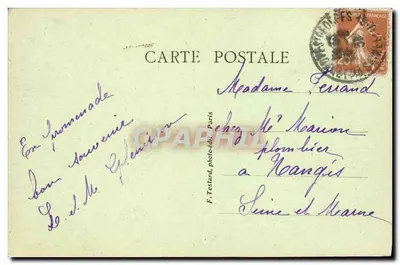 CARTE POSTALE
Madame Ferrand
chez Mr Marion
plombier
a Nangis
Seine et Marne
En promenade
bon souvenir
L. et M.
F. Testard, photo-édit. Paris